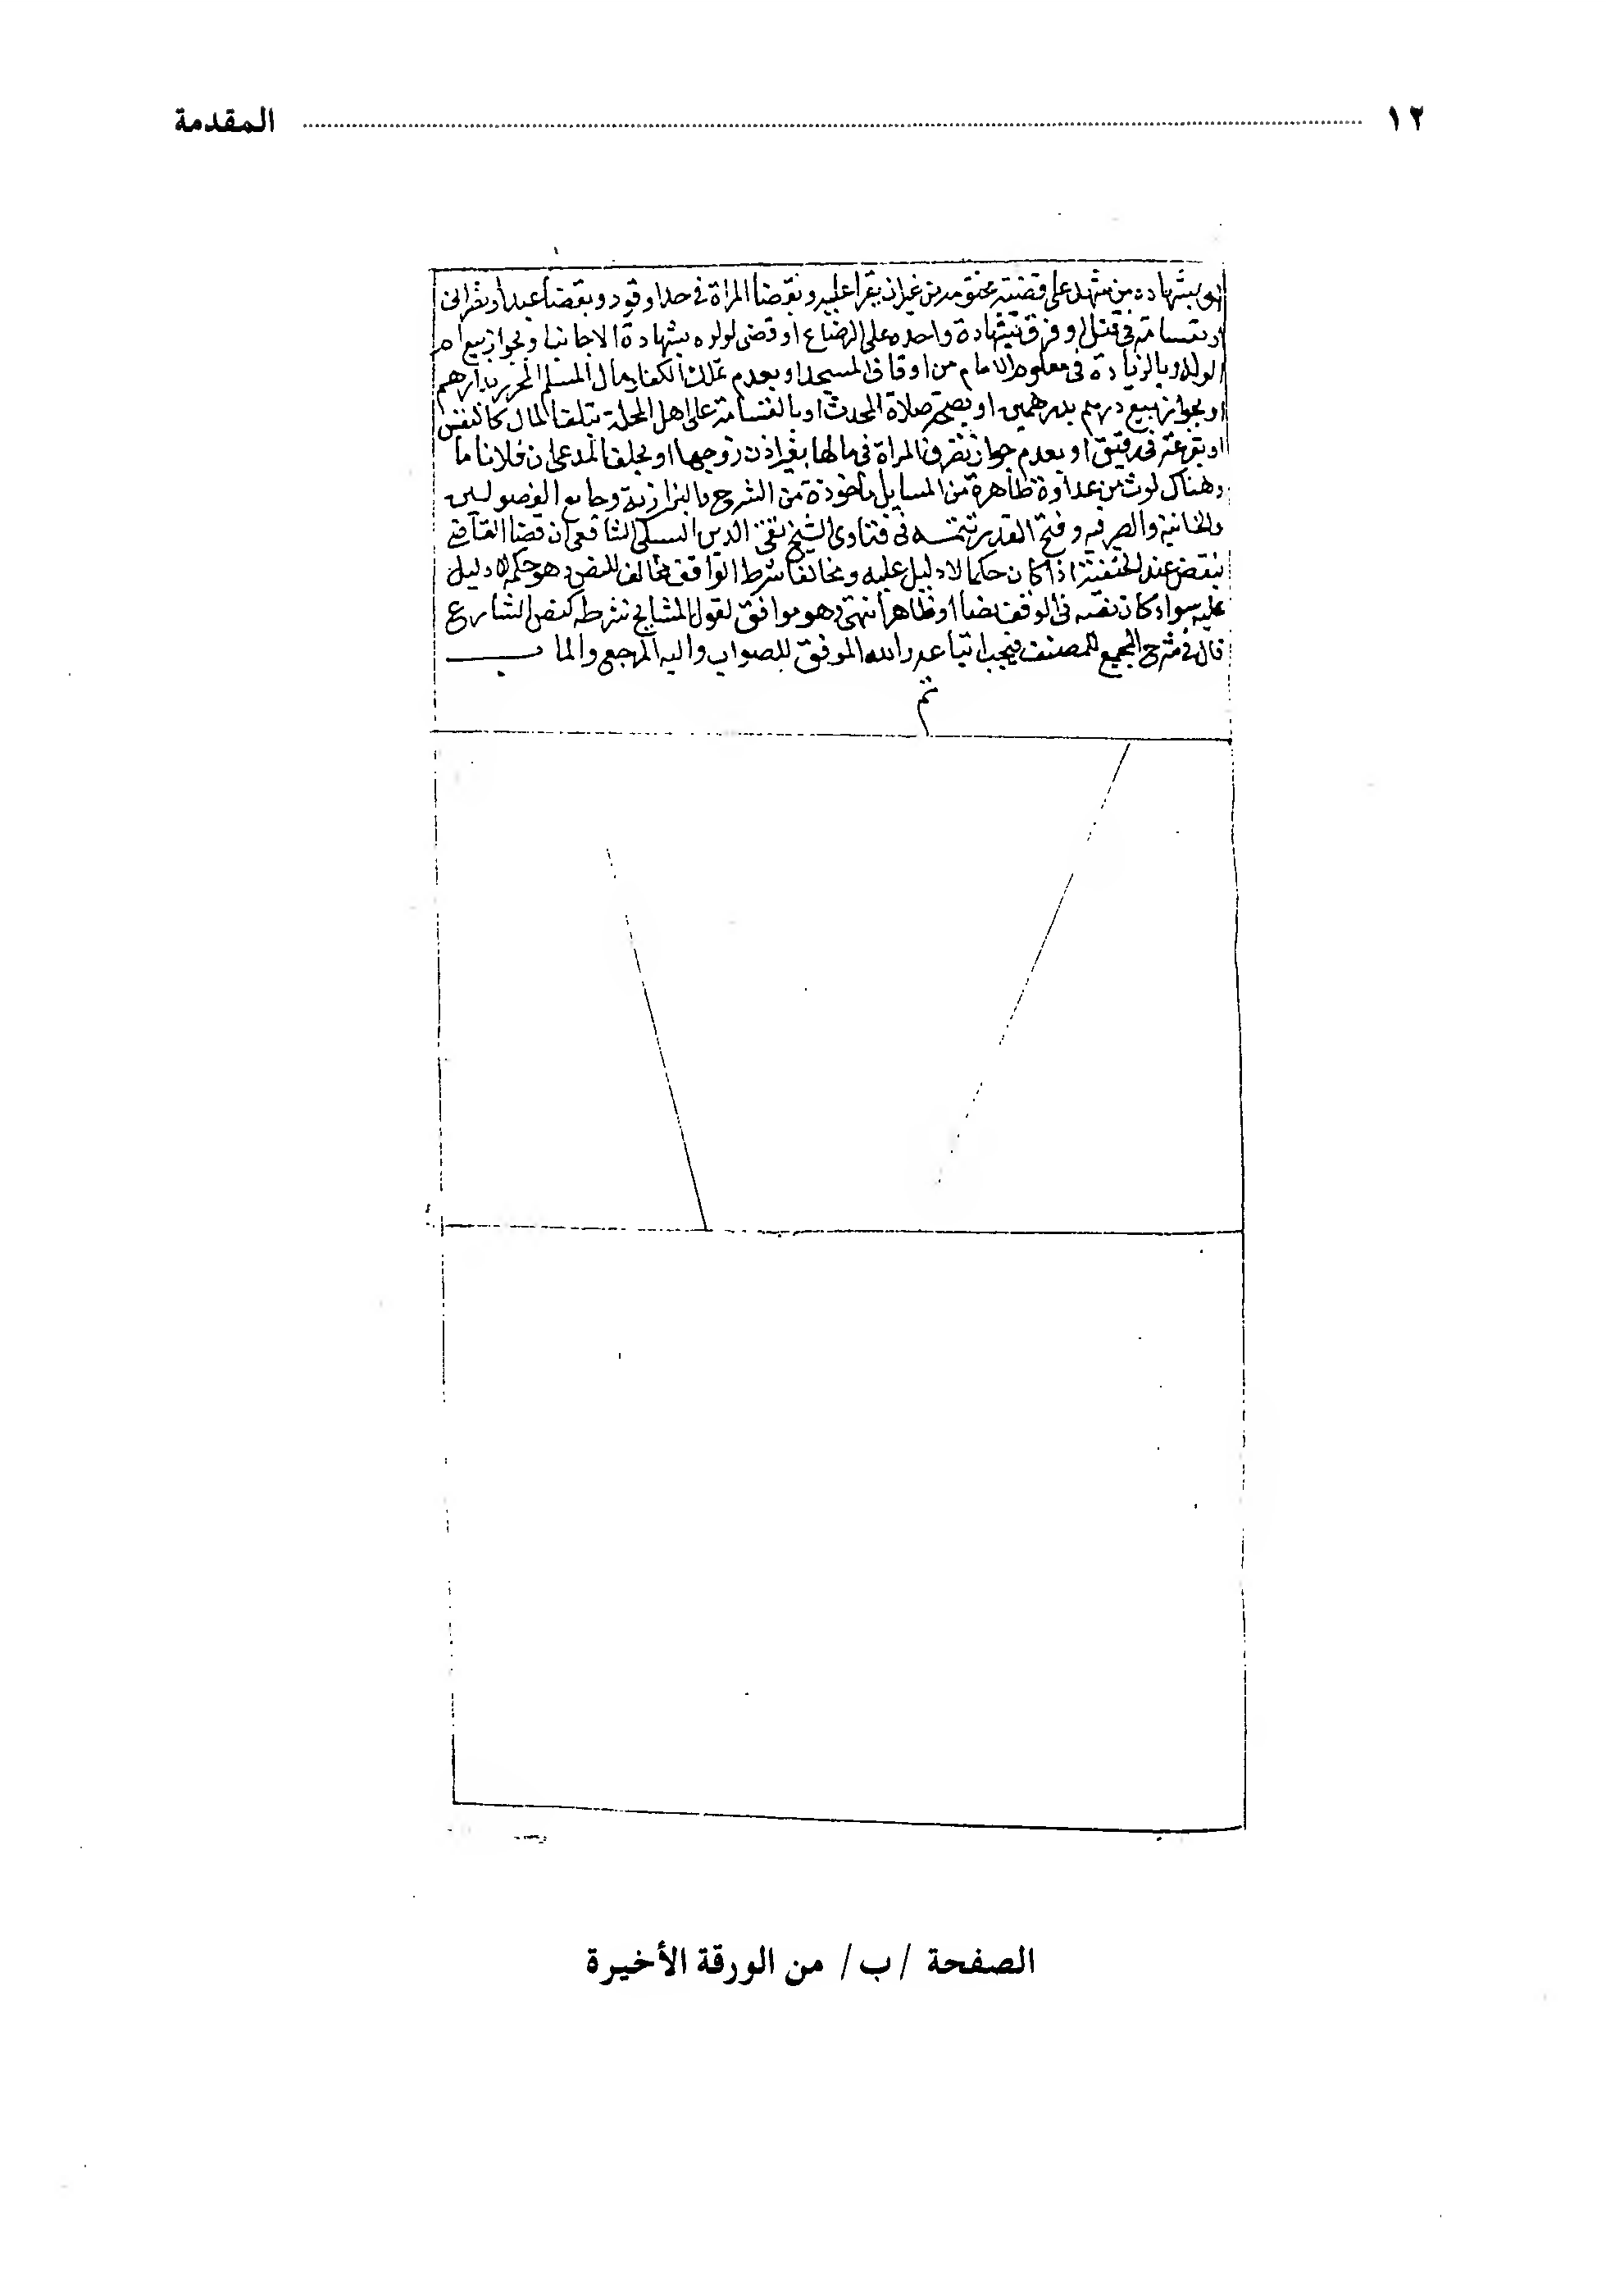 ١٢ المقدمة
او بشهادة من شهد على قضية مختومة من غير ان يقرا عليه وبقضا المراة في حد او قود وبقضا عبد او نصراني
او بقسامة في قتل او فرق بشهادة واحدة على الرضاع او قضى لولده بشهادة الاجانب او بجواز بيع ام
الولد او بالزيادة في معلوم الامام من اوقاف المسجد او بعدم تملك الكفار مال المسلم المحرز بدارهم
او بجواز بيع درهم بدرهمين او بصحة صلاة المحدث او بالقسامة على اهل المحلة بتلف المال كالنفس
او بعدم جواز تصرف المراة في مالها بغير اذن زوجها او بحلف المدعي ان فلانا
وهناك لوث من عداوة ظاهرة من المسايل ماخوذة من الشرح والبزازية وجامع الفصولين
والخانية والصيرفية وفتح القدير تتمه في فتاوى الشيخ تقي الدين السبكي الشافعي ان قضا القاضي
ينقض عند الحنفية اذا كان حكما لا دليل عليه ومخالف شرط الواقف مخالف للنص وهو حكم لا دليل
عليه سواء كان نصه في الوقف نصا او ظاهرا انتهى وهو موافق لقول المشايخ شرطه كنص الشارع
قال في شرح المجمع للمصنف فيجب اتباعه والله الموفق للصواب واليه المرجع والماب
تم
الصفحة /ب/ من الورقة الأخيرة